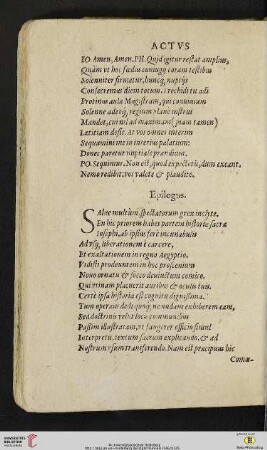 ACTVS
IO. Amen, Amen. PH. Quid igitur restat amplius,
Quàm vt hoc fœdus coniugij coram testibus
Solenniter firmetur, huncq; nuptijs
Consecremus diem totum.
Protinus aulæ Magistrum, qui conuiuium
Solenne adeoq; regium plane instrui
Mandet, cui vis ad maximam (piam tamen)
Letitiam desit. At vos omnes interim
Sequimini me in interius palatium:
Donec paretur nuptiale prandium.
PO. Sequimur. Non est, quod expectetis, dum exeant.
Nemo redibit: vos valete & plaudite.
Epilogus.
SAlue multùm, spectatorum grex inclyte,
En hic priorem habes partem historiæ sacræ
Iosephi, ab ipsius ferè incunabulis
Adusq; liberationem è carcere,
Et exaltationem in regno Aegyptio.
Vidisti prodeuntem in hoc proscenium
Nouo ornatu & socco deuinctum comico.
Qui vtinam placuerit auribus & oculis tuis.
Certè ipsa historia est cognitu dignissima.
Tum operam dedi quoq; ne nudam exhiberem eam,
Sed doctrinis velut locis communibus
Passim illustratam, vt fungerer officio simul
Interpretis, textum sacrum explicando, & ad
Nostrum vsum transferendo. Nam est præcipuus hic
Comœ-
UNIVERSITÄTS-
BIBLIOTHEK
HEIDELBERG